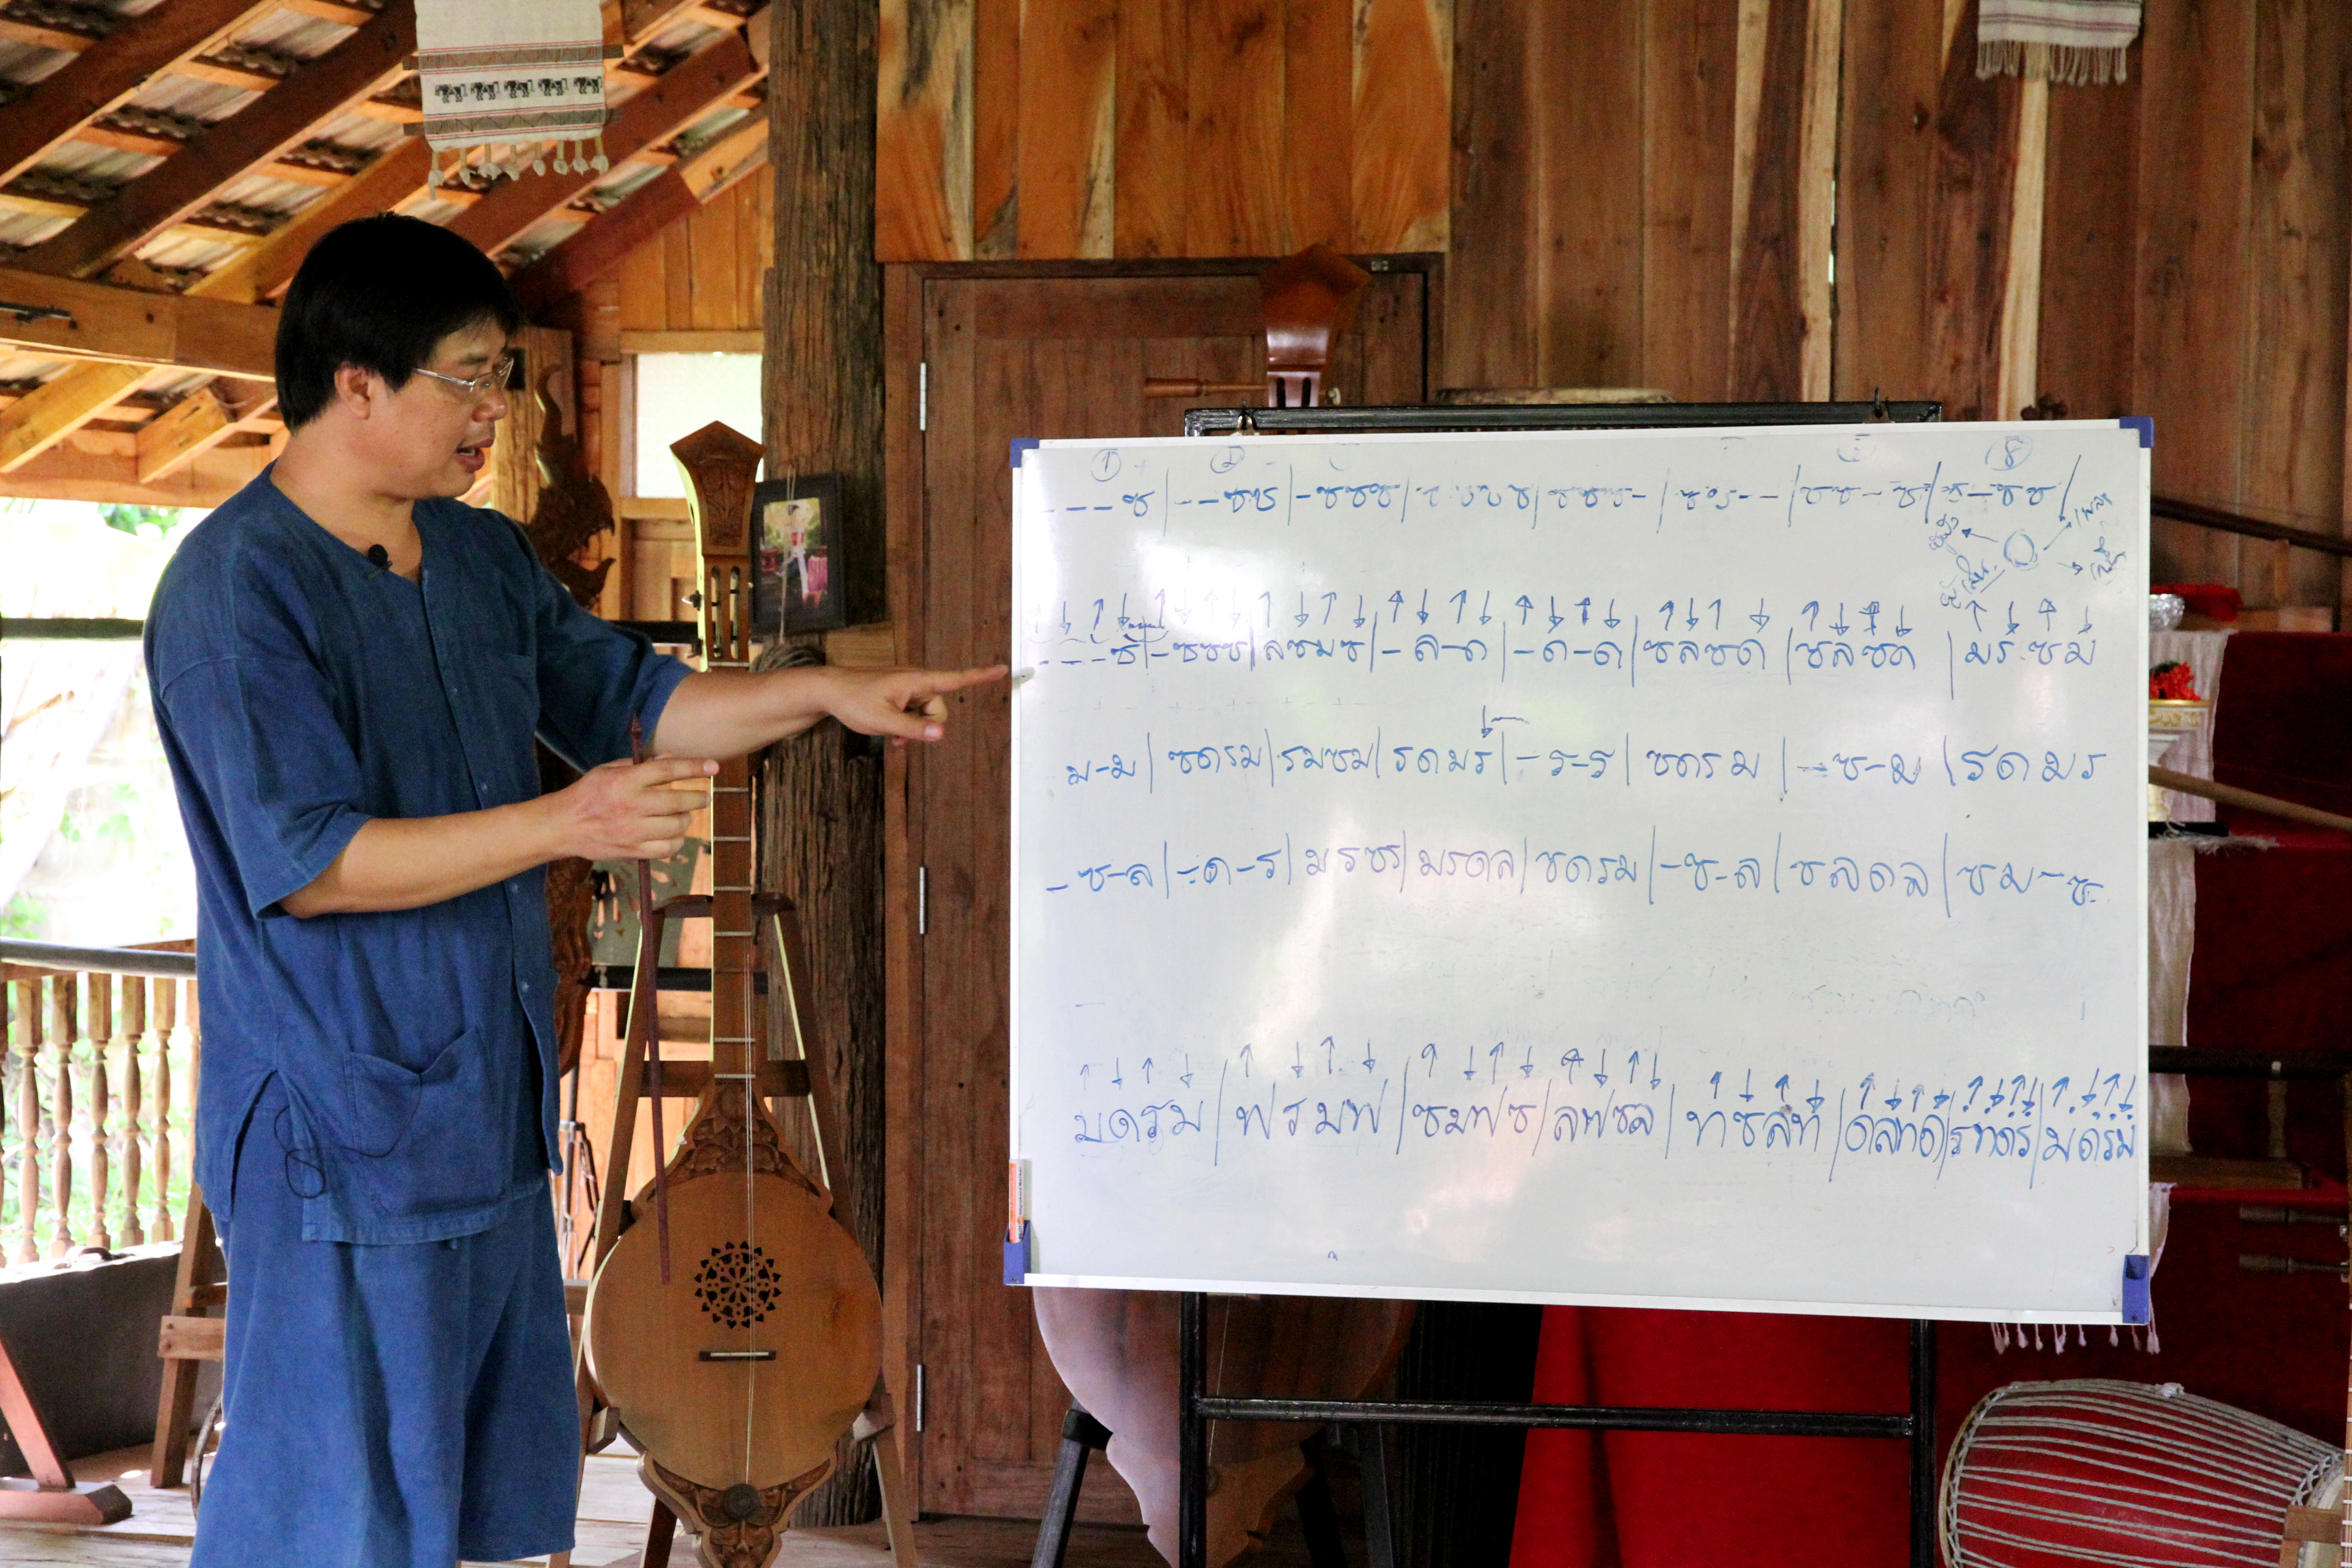 ① ② ⑧
- - - ซ | - - ซซ | - ซซซ | ซซซซ | ซซซ - | ซซ - - | ซซ - ซ | ซ - ซซ |
↑ ↓ ↑ ↓ ↑ ↓ ↑ ↓ ↑ ↓ ↑ ↓ ↑ ↓ ↑ ↓ ↑ ↓ ↑ ↓ ↑ ↓ ↑ ↓ ↑ ↓ ↑ ↓ ↑ ↓ ↑ ↓
- - - ซ | - ซซซ | ลซมซ | - ล - ด | - ด - ด | ซลซด | ซลซด | มร ซม
ม - ม | ซดรม | รมซม | รดมร | - ร - ร | ซดรม | - ซ - ม | รดมร
- ซ - ล | - ด - ร | มรซร | มรดล | ซดรม | - ซ - ล | ซลดล | ซม - ซ
↑ ↓ ↑ ↓ ↑ ↓ ↑ ↓ ↑ ↓ ↑ ↓ ↑ ↓ ↑ ↓ ↑ ↓ ↑ ↓ ↑ ↓ ↑ ↓ ↑ ↓ ↑ ↓ ↑ ↓ ↑ ↓
มดรม | ฟรมฟ | ซมฟซ | ลฟซล | ทซลท | ดลทด | รทดร | มดรม